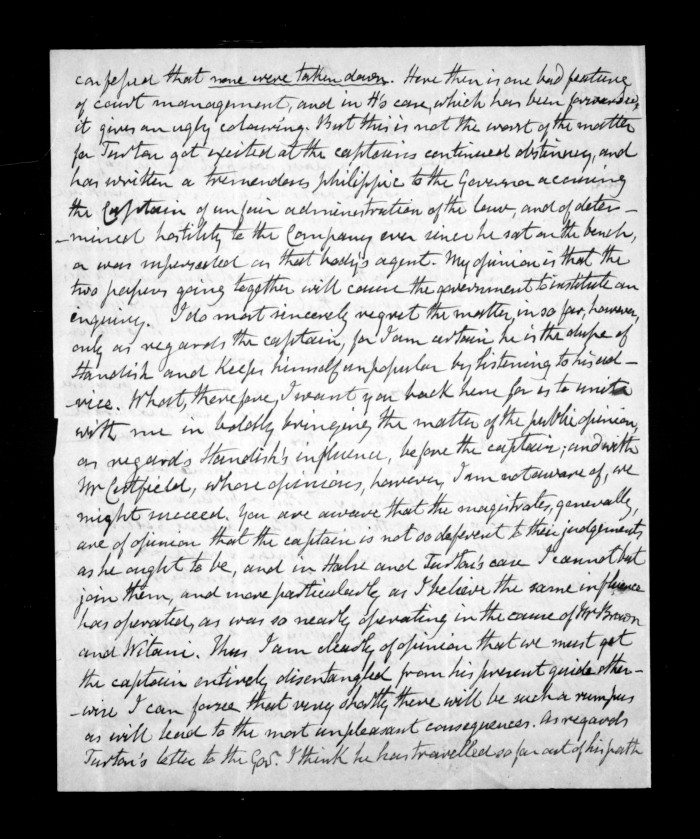 confessed that none were taken down. Here then is one bad feature
of court management, and in H's case, which has been forwarded,
it gives an ugly colouring. But this is not the worst of the matter
for Turton got excited at the captains continued obstinacy, and
has written a tremendous philippic to the Governor accusing
the Captain of unfair administration of the law, and of deter-
-mined hostility to the Company ever since he sat on the bench,
or was superseded as that body's agent. My opinion is that the
two papers going together will cause the government to institute an
enquiry. I do most sincerely regret the matter, in so far, however,
only as regards the captain, for I am certain he is the dupe of
Standish and keeps himself unpopular by listening to his ad-
-vice. What, therefore, I want you back here for is to unite
with me in boldly bringing the matter of the public opinion,
as regards Standish's influence, before the captain; and with
Mr Cutfield, whose opinions, however, I am not aware of, we
might succeed. You are aware that the magistrates, generally,
are of opinion that the captain is not so deferent to their judgements
as he ought to be, and in Halse and Turton's case I cannot but
join them, and more particularly as I believe the same influence
has operated, as was so nearly operating in the cause of Mr Brown
and Witana. Thus I am clearly of opinion that we must get
the captain entirely disentangled from his present guide other-
-wise I can foresee that very shortly there will be such a rumpus
as will lead to the most unpleasant consequences. As regards
Turton's letter to the Govr. I think he has travelled so far out of his path